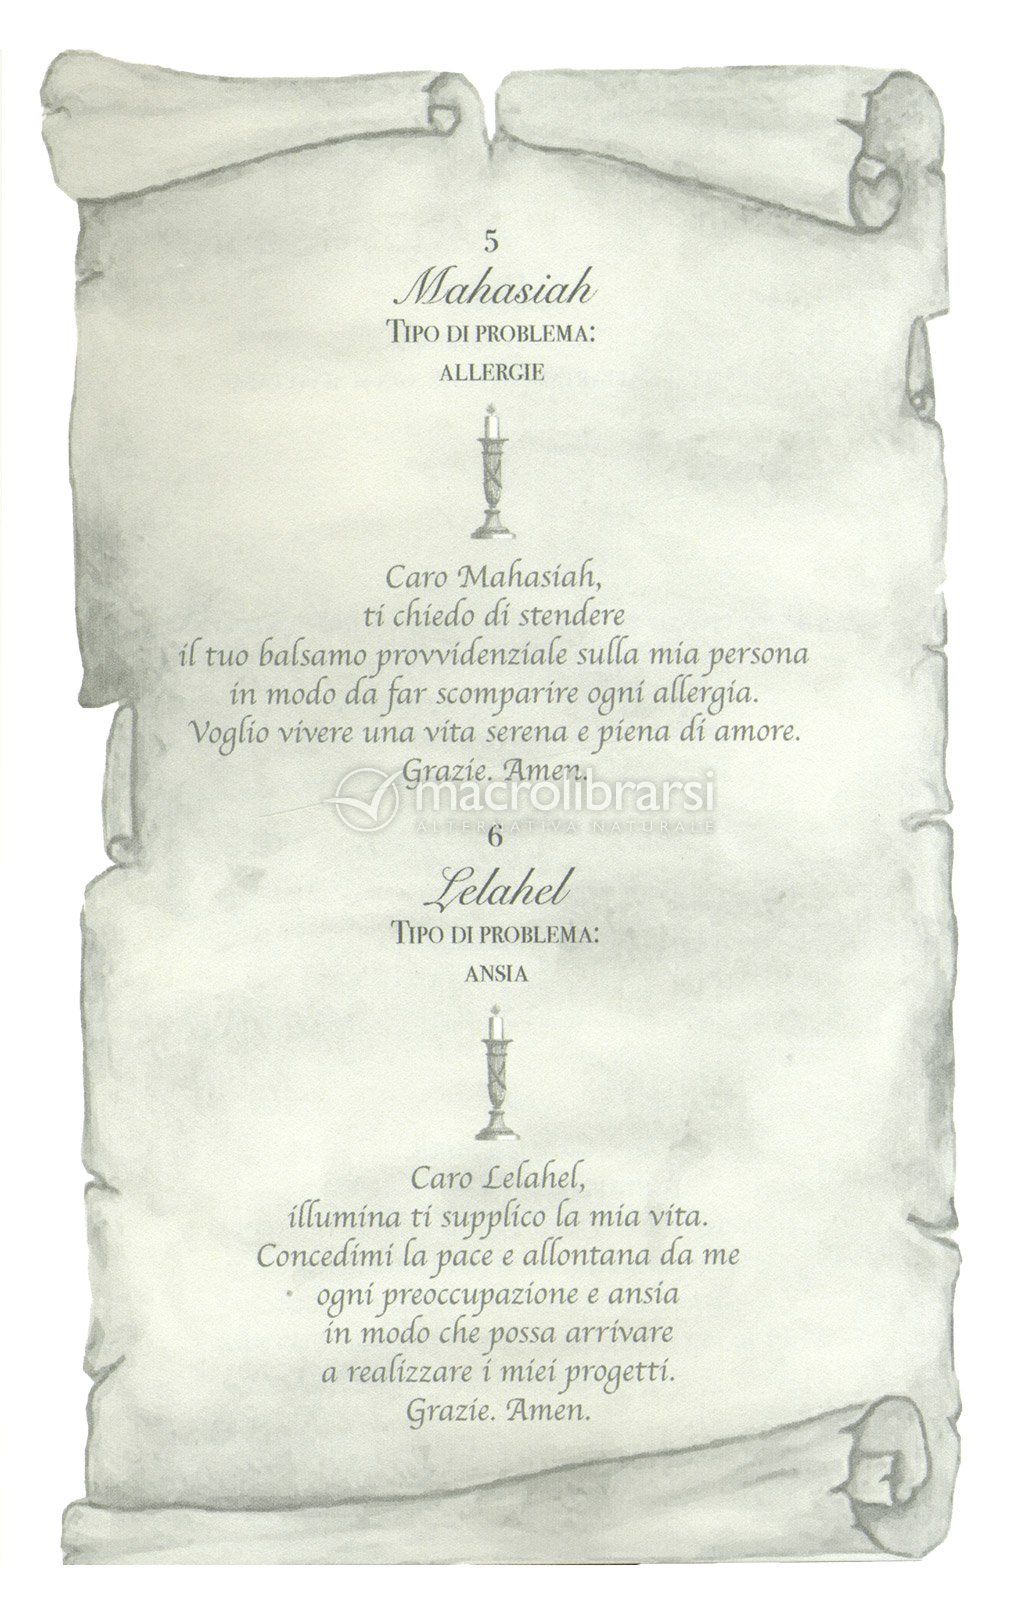 5
Mahasiah
TIPO DI PROBLEMA:
ALLERGIE
Caro Mahasiah,
ti chiedo di stendere
il tuo balsamo provvidenziale sulla mia persona
in modo da far scomparire ogni allergia.
Voglio vivere una vita serena e piena di amore.
Grazie. Amen.
macrolibrarsi
ALTERNATIVA NATURALE
6
Lelahel
TIPO DI PROBLEMA:
ANSIA
Caro Lelahel,
illumina ti supplico la mia vita.
Concedimi la pace e allontana da me
ogni preoccupazione e ansia
in modo che possa arrivare
a realizzare i miei progetti.
Grazie. Amen.